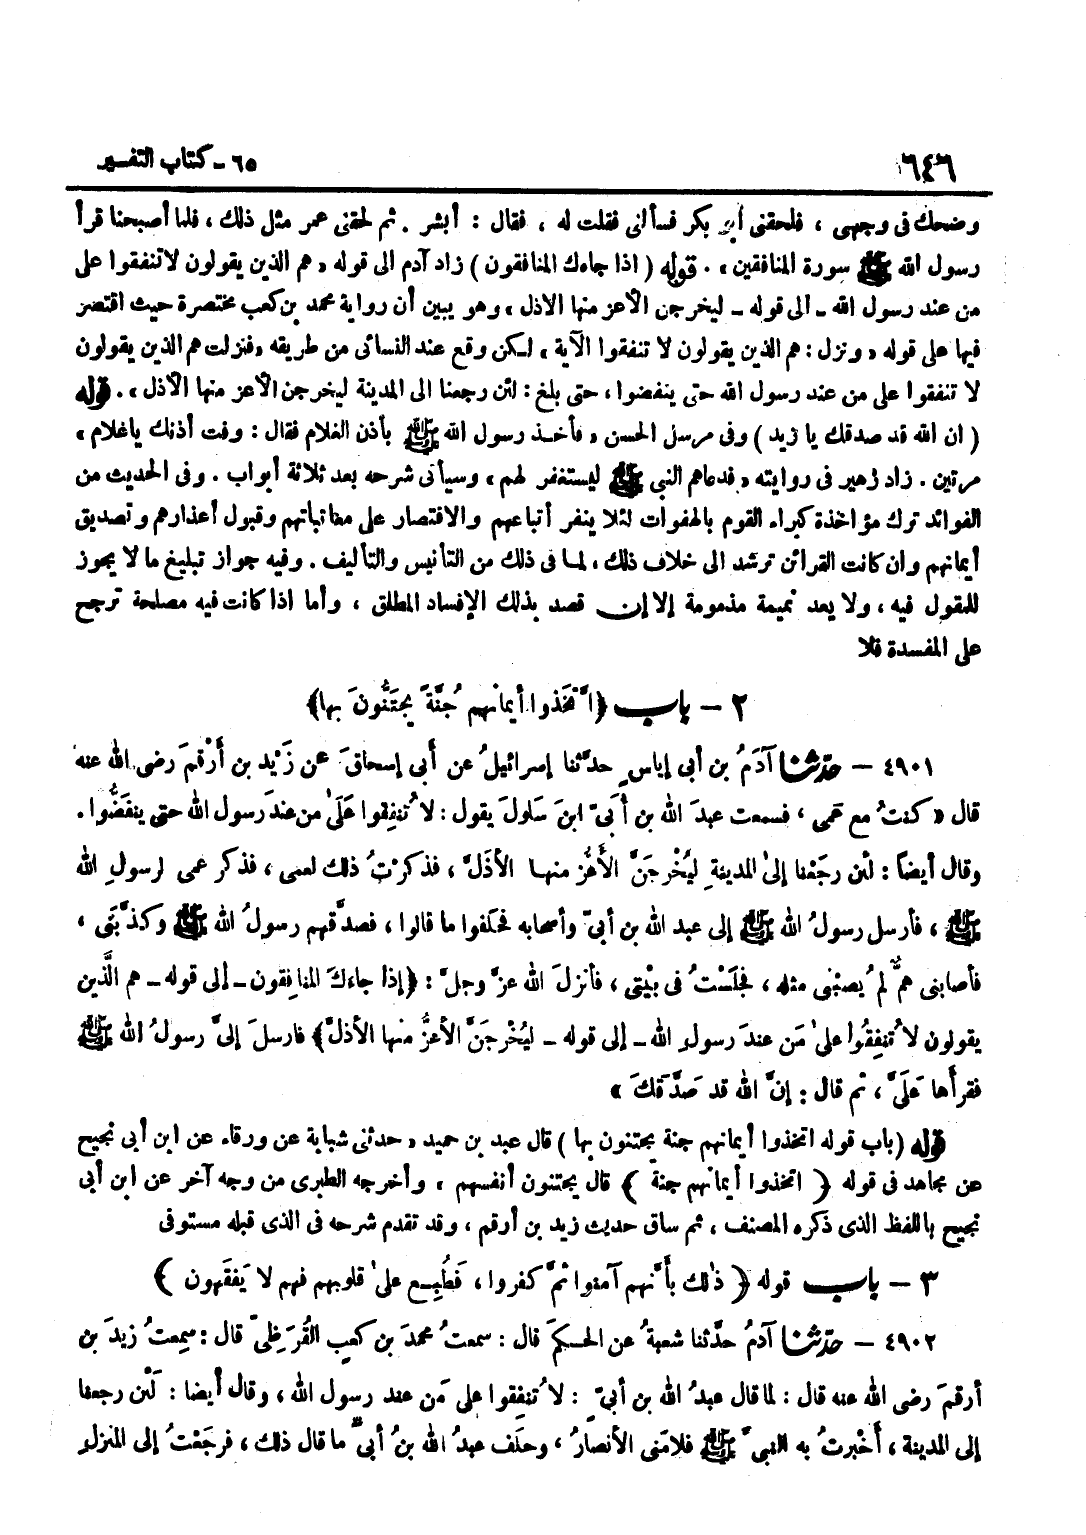 ٦٤٦
٦٥ - كتاب التفسير
وضحك فى وجهى ، فلحقنى أبو بكر فسألنى فقلت له ، فقال : أبشر . ثم لحقنى عمر مثل ذلك ، فلما أصبحنا قرأ
رسول الله ﷺ سورة المنافقين » . قوله ( اذا جاءك المنافقون ) زاد آدم الى قوله « هم الذين يقولون لا تنفقوا على
من عند رسول الله ـ الى قوله ـ ليخرجن الأعز منها الاذل » وهو يبين أن رواية محمد بن كعب مختصرة حيث اقتصر
فيها على قوله « ونزل : هم الذين يقولون لا تنفقوا الآية » لكن وقع عند النسائى من طريقه « فنزلت هم الذين يقولون
لا تنفقوا على من عند رسول الله حتى ينفضوا ، حتى بلغ : لئن رجعنا الى المدينة ليخرجن الأعز منها الأذل » . قوله
( ان الله قد صدقك يا زيد ) وفى مرسل الحسن « فأخذ رسول الله ﷺ بأذن الغلام فقال : وفت أذنك ياغلام »
مرتين . زاد زهير فى روايته « فدعاهم النبى ﷺ ليستغفر لهم » وسيأتى شرحه بعد ثلاثة أبواب . وفى الحديث من
الفوائد ترك مؤاخذة كبراء القوم بالهفوات لئلا ينفر أتباعهم والاقتصار على معاتباتهم وقبول أعذارهم وتصديق
أيمانهم وان كانت القرائن ترشد الى خلاف ذلك ، لما فى ذلك من التأنيس والتأليف . وفيه جواز تبليغ ما لا يجوز
للمقول فيه ، ولا يعد نميمة مذمومة إلا إن قصد بذلك الإفساد المطلق ، وأما اذا كانت فيه مصلحة ترجح
على المفسدة فلا
٢ - باب ﴿اتَّخَذوا أيمانهم جُنَّةَ يجتَنُّونَ بها﴾
٤٩٠١ - حدّثنا آدَمُ بن أبى إياسٍ حدَّثنا إسرائيلُ عن أبى إسحاقَ عن زَيْد بن أرْقمَ رضى الله عنه
قال « كنتُ مع عمى ، فسمعت عبدَ الله بن أُبىّ ابنَ سَلولَ يقول : لا تُنفِقوا عَلَى من عندَ رسول الله حتى ينفَضُّوا .
وقال أيضاً : لئن رجَعْنا إلى المدينةِ ليُخْرجَنَّ الأعَزُّ منها الأذَلَّ ، فذكرْتُ ذلك لعمى ، فذكر عمى لرسولِ الله
ﷺ ، فأرسل رسولُ الله ﷺ إلى عبد الله بن أبىّ وأصحابه فحلَفوا ما قالوا ، فصدَّقهم رسولُ الله ﷺ وكذَّبَنى ،
فأصابنى همٌّ لم يُصبْنى مثله ، فجلَسْتُ فى بيْتى ، فأنزلَ الله عزَّ وجلّ : ﴿إذا جاءكَ المنافِقون ـ إلى قوله ـ هم الَّذين
يقولون لا تُنفِقُوا على مَن عندَ رسولِ الله ـ إلى قوله ـ ليُخْرجَنَّ الأعزُّ منها الأذلَّ﴾ فارسلَ إلىَّ رسولُ الله ﷺ
فقرأها عَلَىَّ ، ثم قال : إنَّ الله قد صَدَّقكَ »
قوله ( باب قوله اتخذوا أيمانهم جنة يجتنون بها ) قال عبد بن حميد « حدثنى شبابة عن ورقاء عن ابن أبى نجيح
عن مجاهد فى قوله ﴿ اتخذوا أيمانهم جنة ﴾ قال يجتنون أنفسهم ، وأخرجه الطبرى من وجه آخر عن ابن أبى
نجيح باللفظ الذى ذكره المصنف ، ثم ساق حديث زيد بن أرقم ، وقد تقدم شرحه فى الذى قبله مستوفى
٣ - باب قوله ﴿ ذٰلك بأنَّهم آمنوا ثمَّ كفروا ، فَطُبِع على قلوبهم فهم لا يَفقَهون ﴾
٤٩٠٢ - حدّثنا آدمُ حدَّثنا شعبةُ عن الحكمَ قال : سمعتُ محمدَ بن كعبٍ القُرَظىّ قال : سمِعتُ زيدَ بن
أرقمَ رضى الله عنه قال : لما قال عبدُ الله بن أبىّ : لا تُنفقوا على مَن عند رسول الله ، وقال أيضا : لَئن رجعنا
إلى المدينة ، أخْبرتُ به النبىَّ ﷺ فلامَنى الأنصارُ ، وحلَف عبدُ الله بنُ أبىّ ما قال ذلك ، فرجَعْتُ إلى المنزلِ